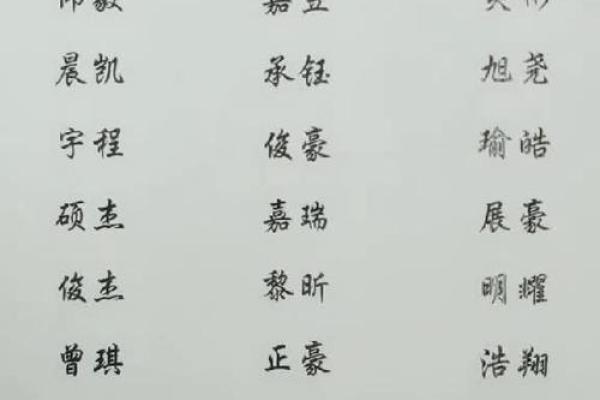 晨凯 承钰 旭尧
宇程 俊豪 瑜皓
硕杰 嘉瑞 展豪
俊杰 黎昕 明耀
曾琪 正豪 浩翔